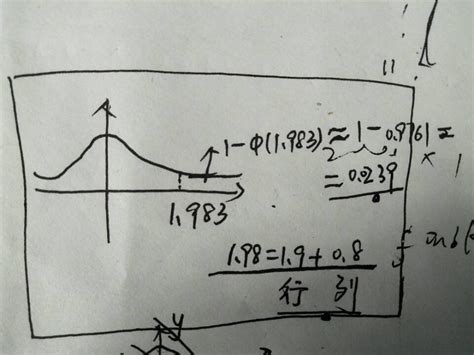 1-Φ(1.983)≈1-0.9761=
=0.0239
1.983
1.98=1.9+0.8
行 列
y